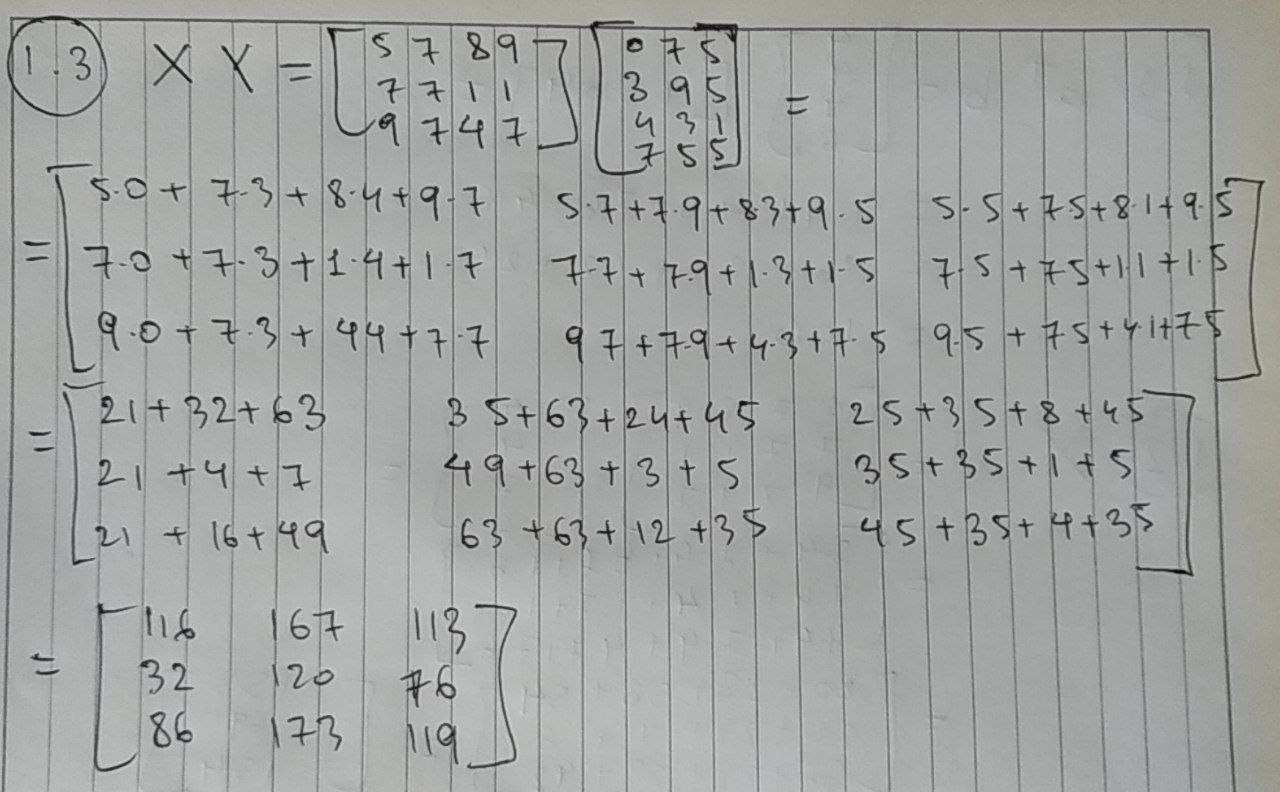 1.3 X Y = [ 5 7 8 9 ] [ 0 7 5 ] =
7 7 1 1 3 9 5
9 7 4 7 4 3 1
7 5 5
= [ 5·0 + 7·3 + 8·4 + 9·7 5·7 + 7·9 + 8 3 + 9·5 5·5 + 7 5 + 8·1 + 9·5 ]
7·0 + 7·3 + 1·4 + 1·7 7·7 + 7·9 + 1·3 + 1·5 7·5 + 7 5 + 1·1 + 1·5
9·0 + 7·3 + 4 4 + 7·7 9 7 + 7·9 + 4·3 + 7·5 9·5 + 7 5 + 4·1 + 7 5
= [ 21 + 32 + 63 35 + 63 + 24 + 45 25 + 35 + 8 + 45 ]
21 + 4 + 7 49 + 63 + 3 + 5 35 + 35 + 1 + 5
21 + 16 + 49 63 + 63 + 12 + 35 45 + 35 + 4 + 35
= [ 116 167 113 ]
32 120 76
86 173 119